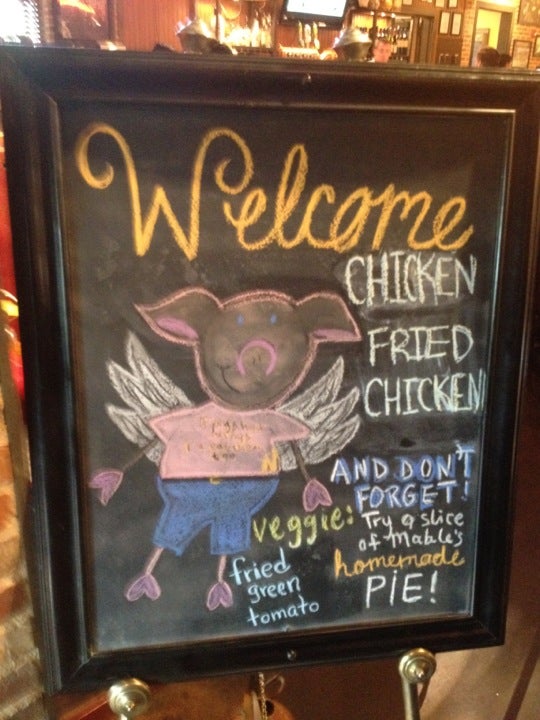 Welcome
CHICKEN
FRIED
CHICKEN
AND DON'T
FORGET!
Try a slice
of Mable's
homemade
PIE!
veggie:
fried
green
tomato